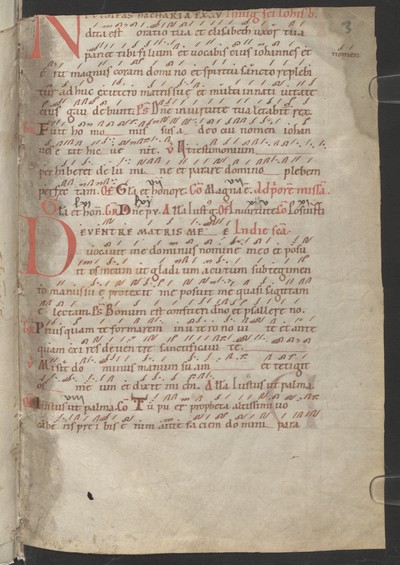 3
NE timeas zacharia exau In uig sci Iohis b.
dita est oratio tua et elisabeth uxor tua
pariet tibi filium et uocabis eius iohannes et
nomen
e rit magnus coram domino et spiritu sancto replebi
tur adhuc ex utero matris sue et multi in natiuitate
eius gau debunt Ps Dne in uirtute tua letabit rex
Fuit ho mo mis sus a deo cui nomen iohan
nes e rat hic ue nit. V Ut testimonium
per hiberet de lu mi ne et parare domino plebem
per fec tam. OF Gla et honore. Co Magna e. ad pore missa.
Gla et hon. GR Dne pr. Alla Iust g. OF In uirtute Co Posuisti
DE VENTRE MATRIS ME E In die sca
uocauit me dominus nomine meo et posu
it os meum ut gladium acutum sub tegumen
to manus su e protexit me posuit me quasi sagittam
e lectam. Ps Bonum est confiteri dno et psallere no.
Priusquam te formarem in u te ro no ui te et ante
quam exi res de uentre sanctificaui te.
V Misit do minus manum su am et tetigit
os me um et dixit mi chi. Alla Iustus ut palma.
Iustus ut palma. Co Tu pu er propheta altissimi uo
cabe ris pre i bis e nim ante faciem domini para